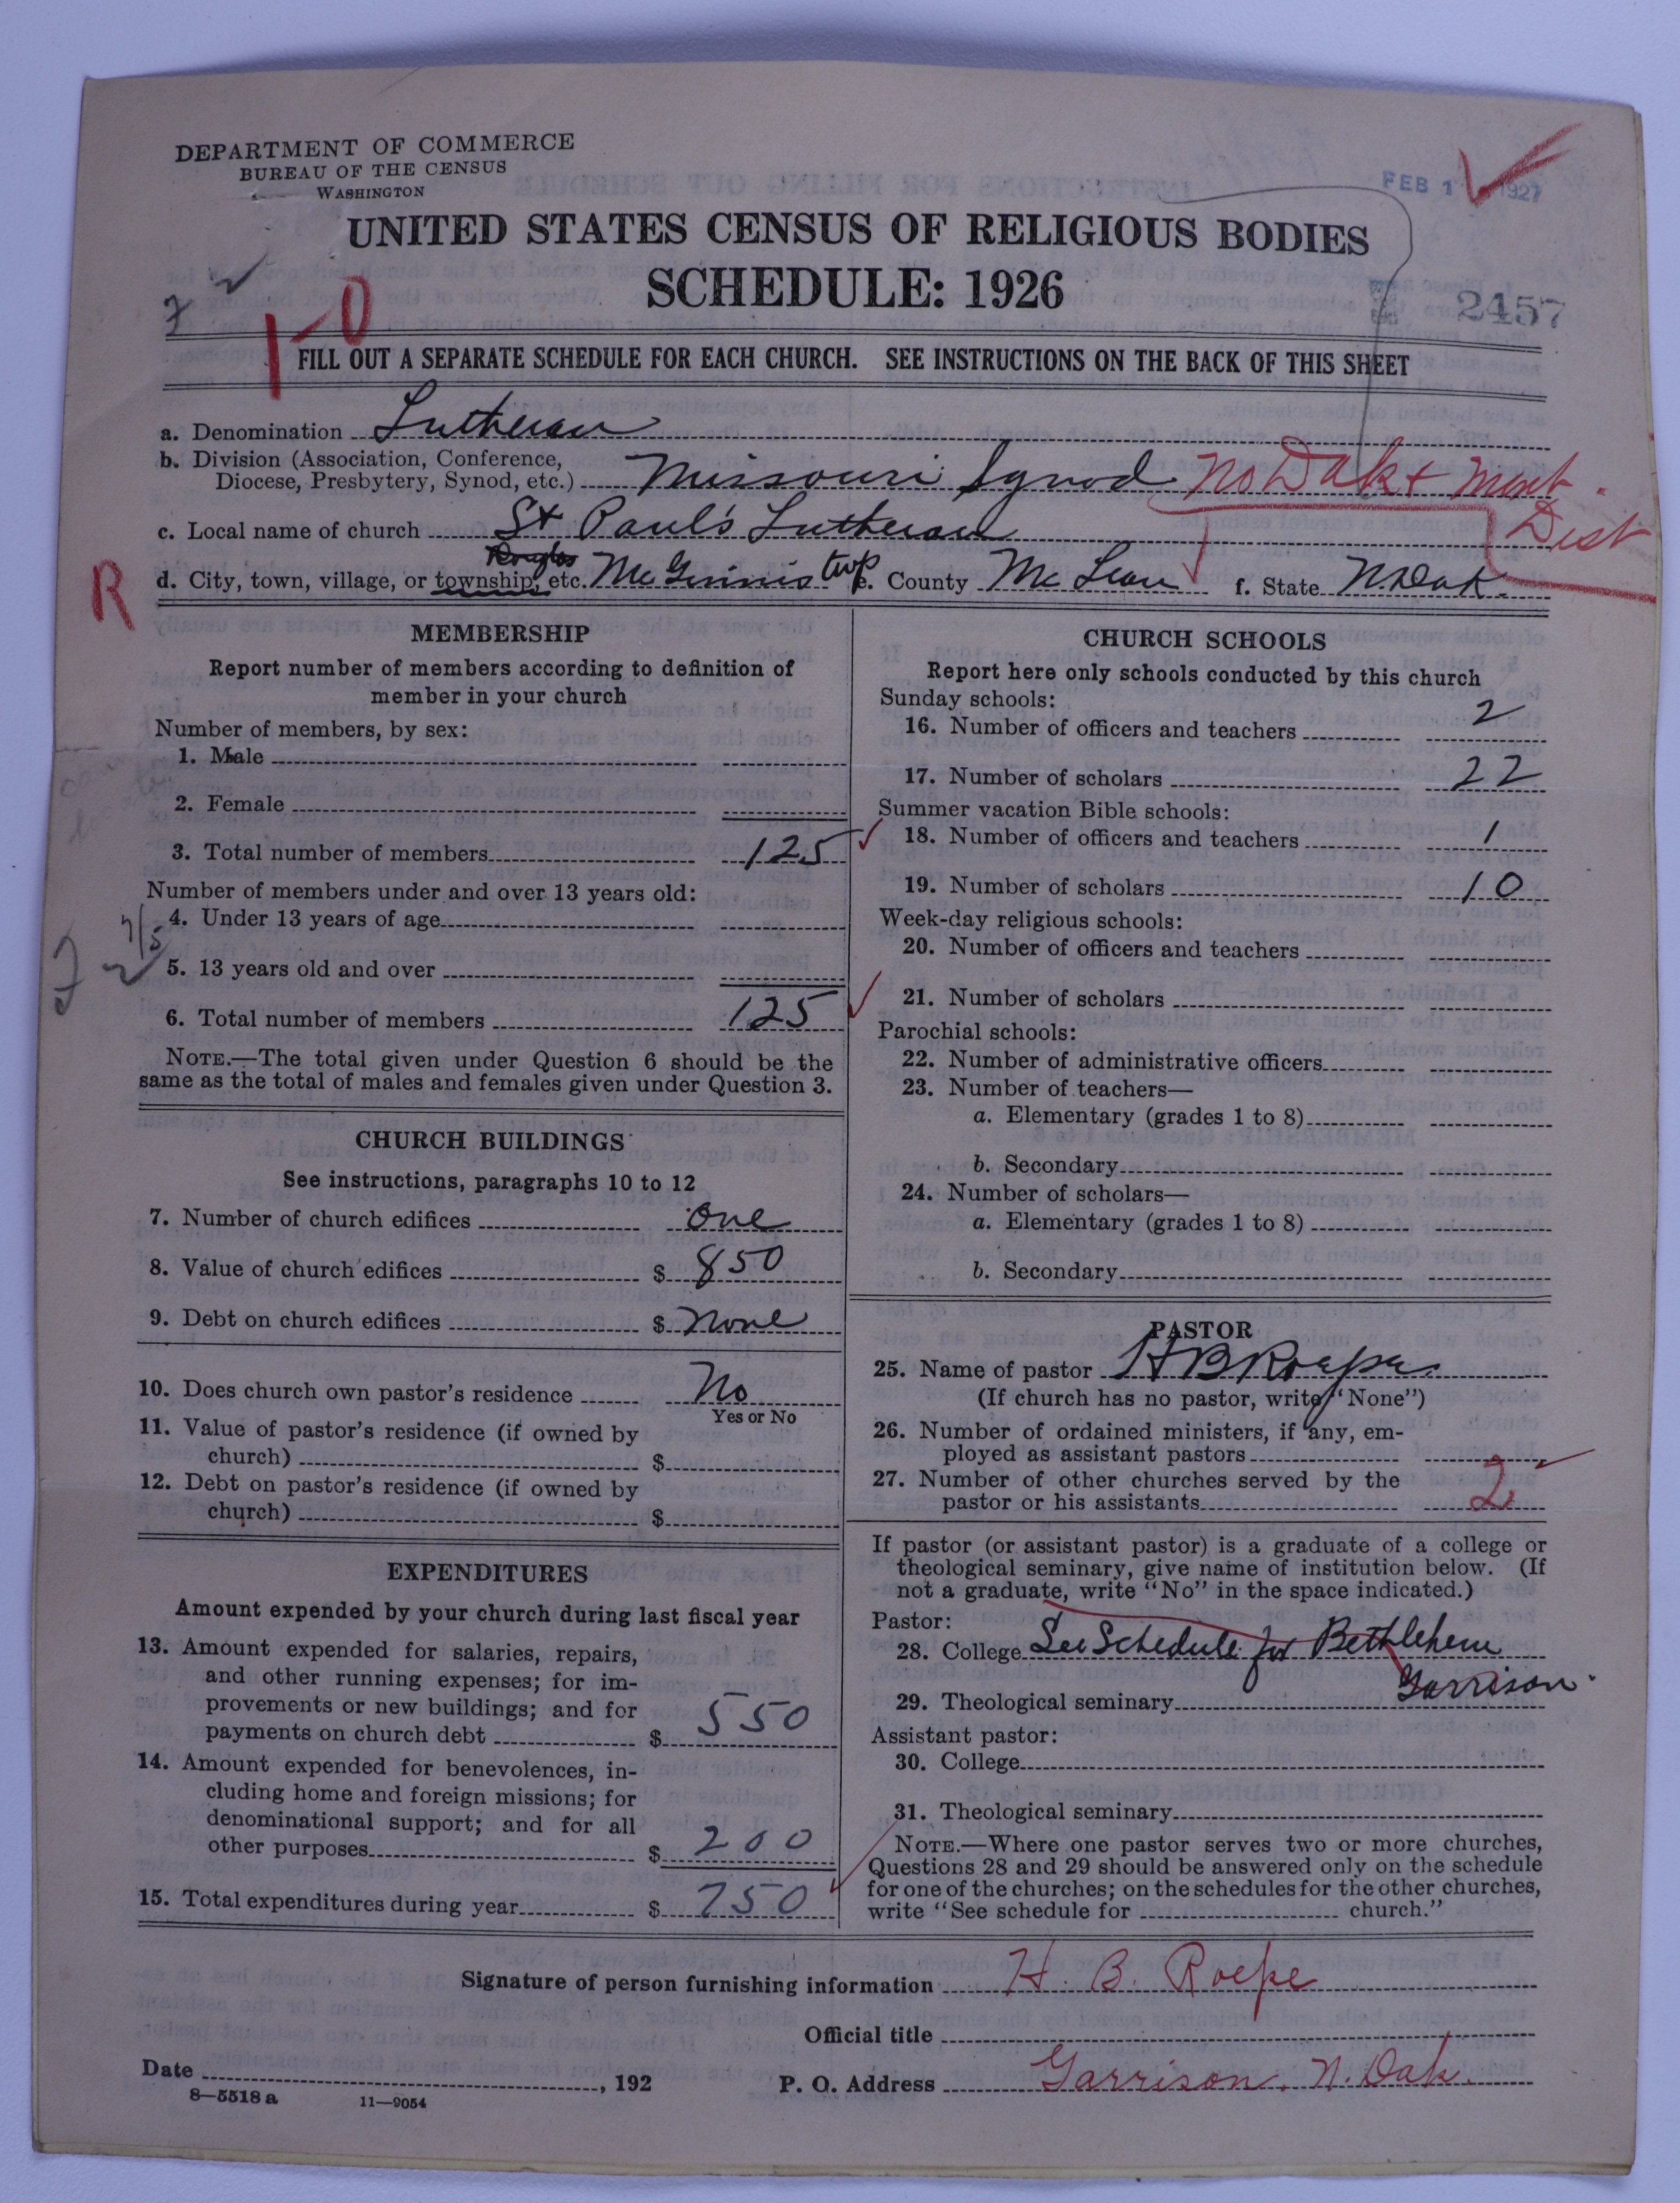 DEPARTMENT OF COMMERCE
BUREAU OF THE CENSUS
WASHINGTON
FEB 1 1927
UNITED STATES CENSUS OF RELIGIOUS BODIES
SCHEDULE: 1926
2457
1-0
FILL OUT A SEPARATE SCHEDULE FOR EACH CHURCH. SEE INSTRUCTIONS ON THE BACK OF THIS SHEET
a. Denomination Lutheran
b. Division (Association, Conference,
Diocese, Presbytery, Synod, etc.) Missouri Synod No Dak + Mont. Dist
c. Local name of church St Paul's Lutheran
R
d. City, town, village, or township, etc. Douglas McGinnis twp e. County McLean f. State N Dak.
MEMBERSHIP
Report number of members according to definition of
member in your church
Number of members, by sex:
1. Male
2. Female
3. Total number of members 125
Number of members under and over 13 years old:
4. Under 13 years of age
5. 13 years old and over
6. Total number of members 125
NOTE.—The total given under Question 6 should be the
same as the total of males and females given under Question 3.
CHURCH BUILDINGS
See instructions, paragraphs 10 to 12
7. Number of church edifices one
8. Value of church edifices $ 850
9. Debt on church edifices $ None
10. Does church own pastor's residence No
Yes or No
11. Value of pastor's residence (if owned by
church) $
12. Debt on pastor's residence (if owned by
church) $
EXPENDITURES
Amount expended by your church during last fiscal year
13. Amount expended for salaries, repairs,
and other running expenses; for im-
provements or new buildings; and for
payments on church debt $ 550
14. Amount expended for benevolences, in-
cluding home and foreign missions; for
denominational support; and for all
other purposes $ 200
15. Total expenditures during year $ 750
CHURCH SCHOOLS
Report here only schools conducted by this church
Sunday schools:
16. Number of officers and teachers 2
17. Number of scholars 22
Summer vacation Bible schools:
18. Number of officers and teachers 1
19. Number of scholars 10
Week-day religious schools:
20. Number of officers and teachers
21. Number of scholars
Parochial schools:
22. Number of administrative officers
23. Number of teachers—
a. Elementary (grades 1 to 8)
b. Secondary
24. Number of scholars—
a. Elementary (grades 1 to 8)
b. Secondary
PASTOR
25. Name of pastor H B Roepe
(If church has no pastor, write "None")
26. Number of ordained ministers, if any, em-
ployed as assistant pastors
27. Number of other churches served by the
pastor or his assistants 2
If pastor (or assistant pastor) is a graduate of a college or
theological seminary, give name of institution below. (If
not a graduate, write "No" in the space indicated.)
Pastor:
28. College See Schedule for Bethlehem
Garrison.
29. Theological seminary
Assistant pastor:
30. College
31. Theological seminary
NOTE.—Where one pastor serves two or more churches,
Questions 28 and 29 should be answered only on the schedule
for one of the churches; on the schedules for the other churches,
write "See schedule for church."
Signature of person furnishing information H. B. Roepe
Official title
Date , 192
P. O. Address Garrison, N. Dak.
8—5518 a 11—9054